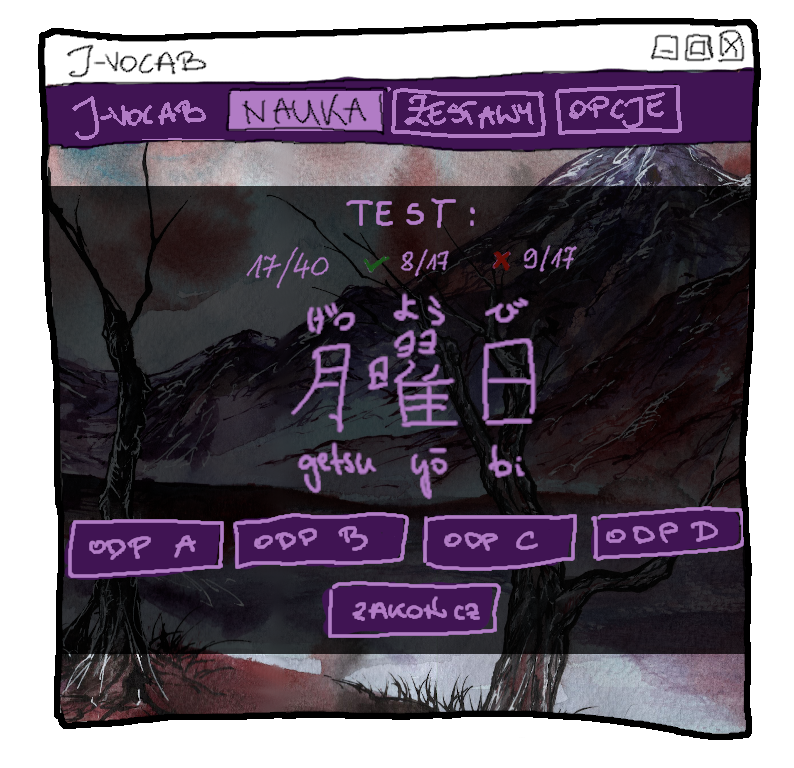 J-VOCAB
J-VOCAB NAUKA ZESTAWY OPCJE
TEST:
17/40 ✓ 8/17 ✗ 9/17
げつ よう び
月曜日
getsu yō bi
ODP A ODP B ODP C ODP D
ZAKOŃCZ